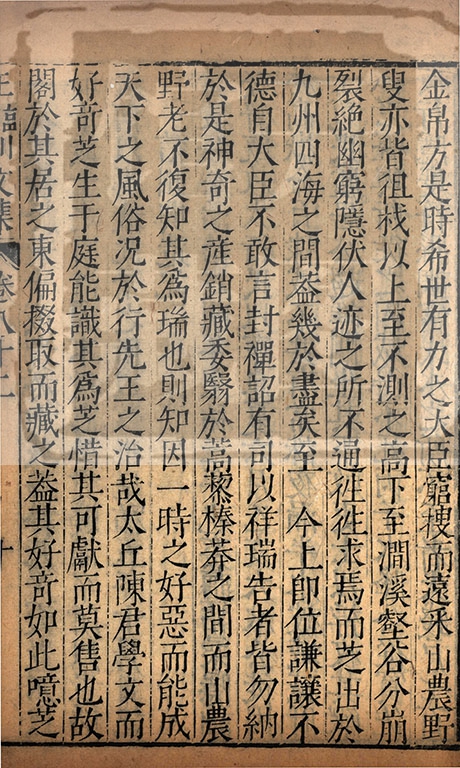 金帛方是時希世有力之大臣窮搜而遠采山農野
叟亦皆徂杙以上至不測之高下至澗溪壑谷分崩
裂絶幽窮隱伏人迹之所不通徃徃求焉而芝出於
九州四海之間葢幾於盡矣至　今上即位謙讓不
德自大臣不敢言封禪詔有司以祥瑞告者皆勿納
於是神奇之産銷藏委翳於蒿藜榛莽之間而山農
野老不復知其為瑞也則知因一時之好惡而能成
天下之風俗况於行先王之治哉太丘陳君學文而
好竒芝生于庭能識其爲芝惜其可獻而莫售也故
閣於其居之東偏掇取而藏之葢其好竒如此噫芝
王臨川文集　卷八十二　十